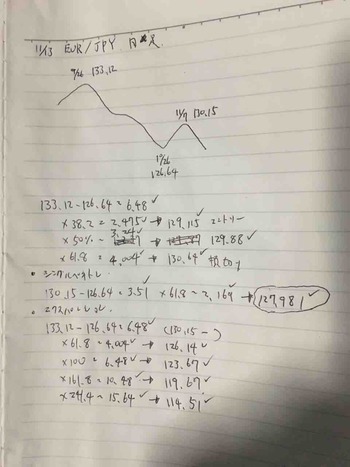 11/13 EUR/JPY 日足
9/26 133.12
11/7 130.15
126.64
133.12-126.64=6.48✓
×38.2=2.475✓→129.115✓ エントリー
×50%=3.24✓ 129.88✓
×61.8=4.004✓→130.64✓ 損切り
130.15-126.64=3.51✓ ×61.8=2.169✓→127.981✓
133.12-126.64=6.48✓ (130.15-)
×61.8=4.004✓→126.14✓
×100=6.48✓→123.67✓
×161.8=10.48✓→119.67✓
=15.64✓→114.51✓